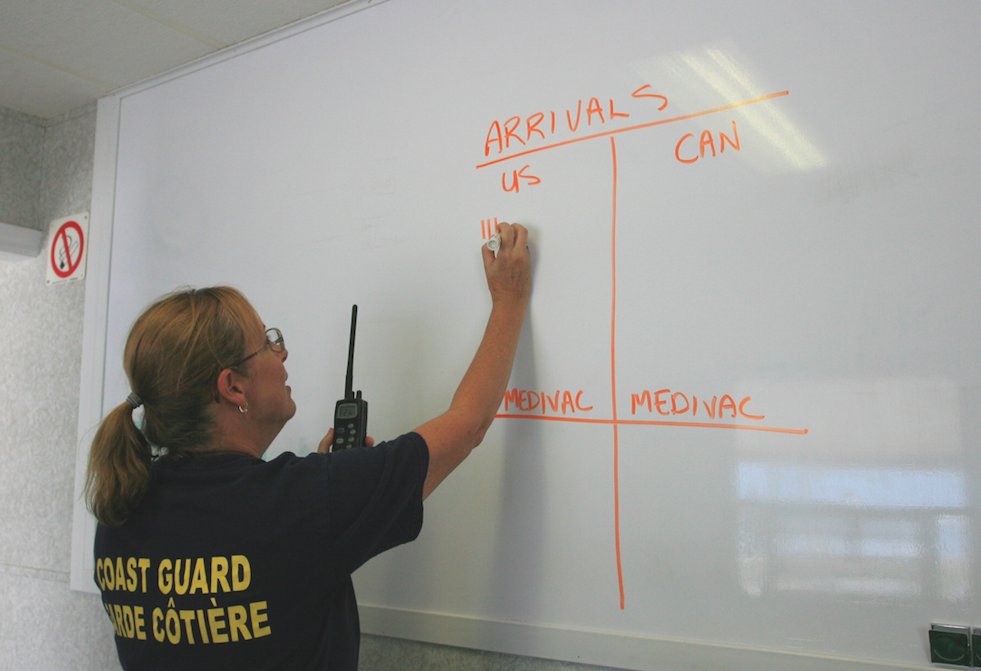 ARRIVALS
US CAN
MEDIVAC MEDIVAC
COAST GUARD
ARDE CÔTIÈRE